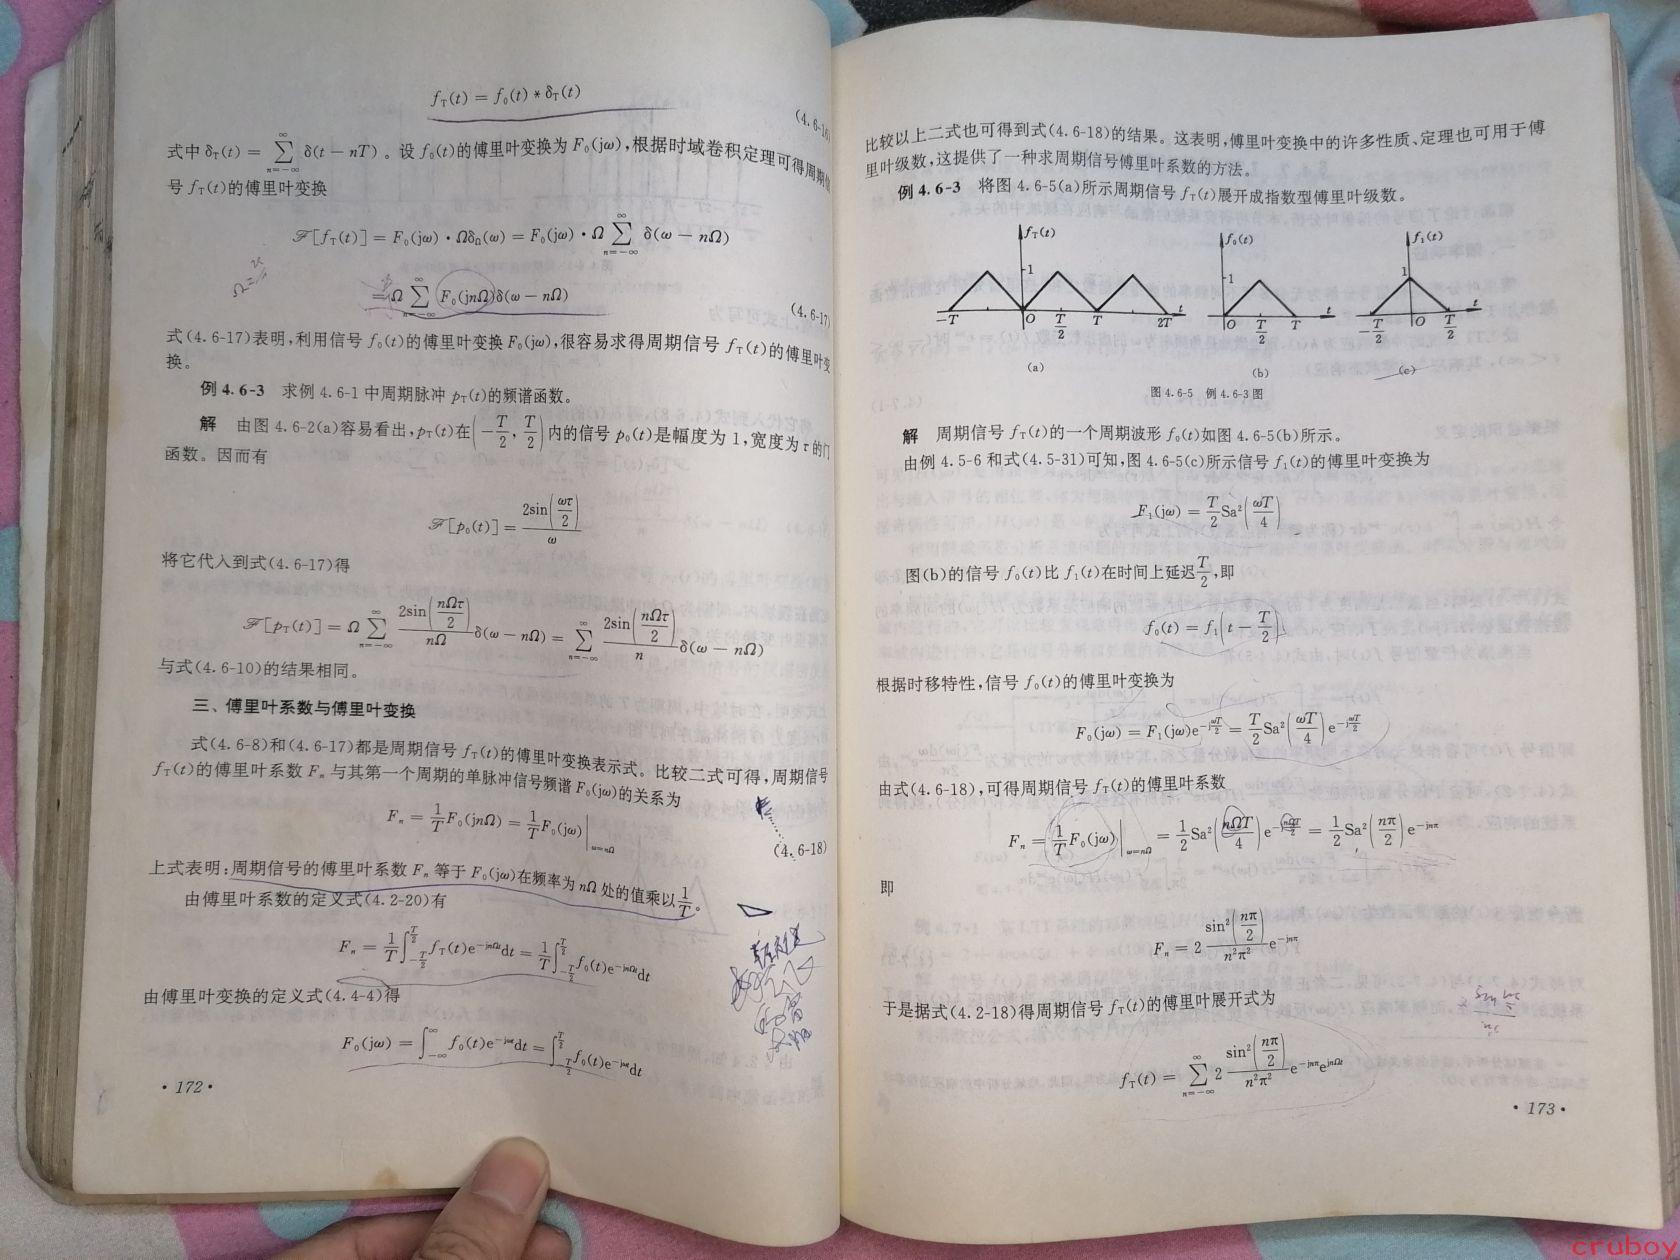 f_T(t) = f_0(t) * δ_T(t)
(4.6-16)
式中 δ_T(t) = ∑_{n=-∞}^{∞} δ(t − nT) 。设 f_0(t)的傅里叶变换为 F_0(jω),根据时域卷积定理可得周期信
号 f_T(t)的傅里叶变换
ℱ[f_T(t)] = F_0(jω)·Ωδ_Ω(ω) = F_0(jω)·Ω ∑_{n=-∞}^{∞} δ(ω − nΩ)
= Ω ∑_{n=-∞}^{∞} F_0(jnΩ)δ(ω − nΩ)
(4.6-17)
式(4.6-17)表明,利用信号 f_0(t)的傅里叶变换 F_0(jω),很容易求得周期信号 f_T(t)的傅里叶变
换。
例 4.6-3 求例 4.6-1 中周期脉冲 p_T(t)的频谱函数。
解 由图 4.6-2(a)容易看出,p_T(t)在(−T/2, T/2)内的信号 p_0(t)是幅度为 1,宽度为 τ 的门
函数。因而有
ℱ[p_0(t)] = 2sin(ωτ/2)/ω
将它代入到式(4.6-17)得
ℱ[p_T(t)] = Ω ∑_{n=-∞}^{∞} 2sin(nΩτ/2)/(nΩ) δ(ω − nΩ) = ∑_{n=-∞}^{∞} 2sin(nΩτ/2)/n δ(ω − nΩ)
与式(4.6-10)的结果相同。
三、傅里叶系数与傅里叶变换
式(4.6-8)和(4.6-17)都是周期信号 f_T(t)的傅里叶变换表示式。比较二式可得,周期信号
f_T(t)的傅里叶系数 F_n 与其第一个周期的单脉冲信号频谱 F_0(jω)的关系为
F_n = 1/T F_0(jnΩ) = 1/T F_0(jω)|_{ω=nΩ}
(4.6-18)
上式表明:周期信号的傅里叶系数 F_n 等于 F_0(jω)在频率为 nΩ 处的值乘以 1/T。
由傅里叶系数的定义式(4.2-20)有
F_n = 1/T ∫_{-T/2}^{T/2} f_T(t)e^{-jnΩt}dt = 1/T ∫_{-T/2}^{T/2} f_0(t)e^{-jnΩt}dt
由傅里叶变换的定义式(4.4-4)得
F_0(jω) = ∫_{-∞}^{∞} f_0(t)e^{-jωt}dt = ∫_{-T/2}^{T/2} f_0(t)e^{-jωt}dt
· 172 ·
比较以上二式也可得到式(4.6-18)的结果。这表明,傅里叶变换中的许多性质、定理也可用于傅
里叶级数,这提供了一种求周期信号傅里叶系数的方法。
例 4.6-3 将图 4.6-5(a)所示周期信号 f_T(t)展开成指数型傅里叶级数。
f_T(t) f_0(t) f_1(t)
1 1 1
−T O T/2 T 2T t O T/2 T t −T/2 O T/2 t
(a) (b) (c)
图 4.6-5 例 4.6-3 图
解 周期信号 f_T(t)的一个周期波形 f_0(t)如图 4.6-5(b)所示。
由例 4.5-6 和式(4.5-31)可知,图 4.6-5(c)所示信号 f_1(t)的傅里叶变换为
F_1(jω) = T/2 Sa²(ωT/4)
图(b)的信号 f_0(t)比 f_1(t)在时间上延迟 T/2,即
f_0(t) = f_1(t − T/2)
根据时移特性,信号 f_0(t)的傅里叶变换为
F_0(jω) = F_1(jω)e^{-jωT/2} = T/2 Sa²(ωT/4) e^{-jωT/2}
由式(4.6-18),可得周期信号 f_T(t)的傅里叶系数
F_n = 1/T F_0(jω)|_{ω=nΩ} = 1/2 Sa²(nΩT/4) e^{-jnΩT/2} = 1/2 Sa²(nπ/2) e^{-jnπ}
即
F_n = 2 sin²(nπ/2)/(n²π²) e^{-jnπ}
于是据式(4.2-18)得周期信号 f_T(t)的傅里叶展开式为
f_T(t) = ∑_{n=-∞}^{∞} 2 sin²(nπ/2)/(n²π²) e^{-jnπ}e^{jnΩt}
· 173 ·
cruboy